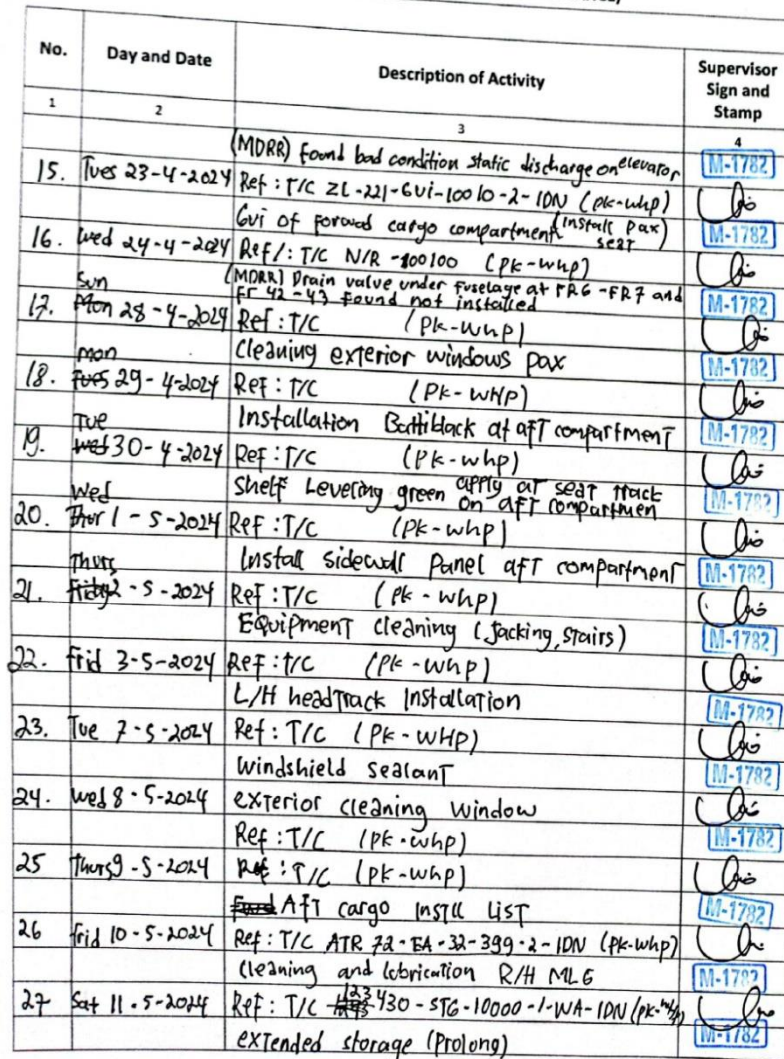 No. Day and Date Description of Activity Supervisor Sign and Stamp
1 2 3 4
(MDRR) Found bad condition static discharge on elevator M-1782
15. Tues 23-4-2024 Ref : T/C ZL-221-GVI-10010-2-IDN (pk-whp)
Gvi of forwad cargo compartment (install pax seat) M-1782
16. Wed 24-4-2024 Ref/: T/C N/R -100100 (pk-whp)
(MDRR) Drain value under fuselage at FR6 -FR7 and FR 42-43 found not installed M-1782
17. Sun Mon 28-4-2024 Ref : T/C (Pk-whp)
Cleaning exterior windows pax M-1782
18. Mon Tues 29-4-2024 Ref : T/C (Pk-WHP)
Installation Battiblack at afT compartmenT M-1782
19. Tue Wed 30-4-2024 Ref : T/C (Pk-whp)
Shelf Levering green apply at seat track on afT compartmen M-1782
20. Wed Thur 1-5-2024 Ref : T/C (Pk-whp)
Install sidewall Panel afT compartment M-1782
21. Thurs Friday 2-5-2024 Ref : T/C (Pk-whp)
EquipmenT cleaning (Jacking, stairs) M-1782
22. Frid 3-5-2024 Ref : t/c (Pk-whp)
L/H headTrack Installation M-1782
23. Tue 7-5-2024 Ref : T/C (Pk-WHP)
windshield sealanT M-1782
24. Wed 8-5-2024 exterior cleaning window
Ref : T/C (pk-whp) M-1782
25 Thurs 9-5-2024 Ref : T/C (Pk-whp)
AfT cargo instll List M-1782
26 Frid 10-5-2024 Ref : T/C ATR 72-EA-32-399-2-IDN (Pk-whp)
Cleaning and lubrication R/H MLG M-1782
27 Sat 11-5-2024 Ref : T/C 123430-STG-10000-1-WA-IDN (pk-whp)
exTended storage (Prolong) M-1782